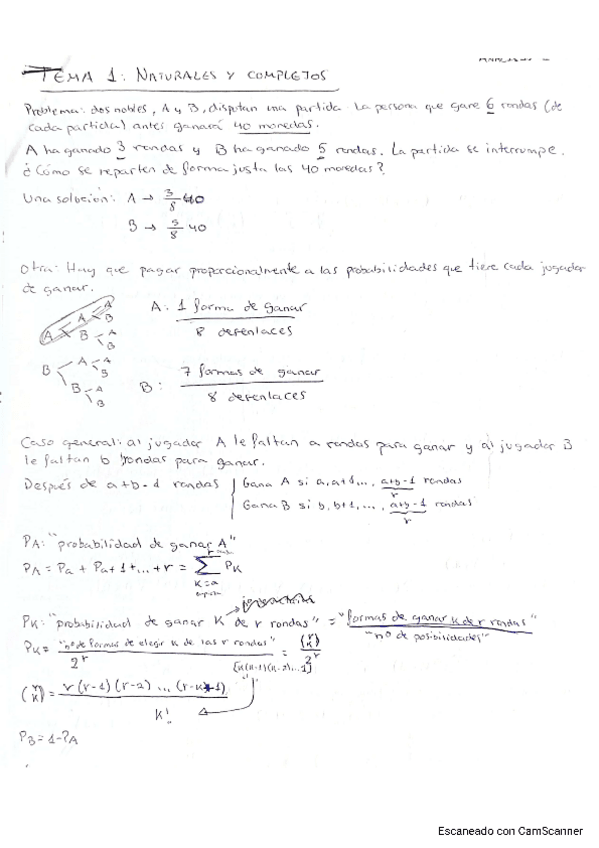 TEMA 1: NATURALES Y COMPLEJOS
Problema: dos nobles, A y B, disputan una partida. La persona que gane 6 rondas (de
cada partida) antes ganará 40 monedas.
A ha ganado 3 rondas y B ha ganado 5 rondas. La partida se interrumpe.
¿Cómo se reparten de forma justa las 40 monedas?
Una solución: A → 3/8 40
B → 5/8 40
Otra: Hay que pagar proporcionalmente a las probabilidades que tiene cada jugador
de ganar.
A
A < B
A < B < A
B
A: 1 forma de ganar / 8 desenlaces
B < A < A
B
B < A
B
B: 7 formas de ganar / 8 desenlaces
Caso general: al jugador A le faltan a rondas para ganar y al jugador B
le faltan b rondas para ganar.
Después de a+b-1 rondas { Gana A si a, a+1..., a+b-1 rondas
r
Gana B si b, b+1, ..., a+b-1 rondas
r
PA: "probabilidad de ganar A"
PA = Pa + Pa+1 + ... + r = Σ PK
K=a
PK: "probabilidad de ganar K de r rondas" = "formas de ganar K de r rondas" / "nº de posibilidades"
PK = "nº de formas de elegir K de las r rondas" / 2^r = (r K) / 2^r
[K(K-1)(K-2)...1]
(r K) = r(r-1)(r-2)...(r-K+1) / K!
PB = 1-PA
Escaneado con CamScanner